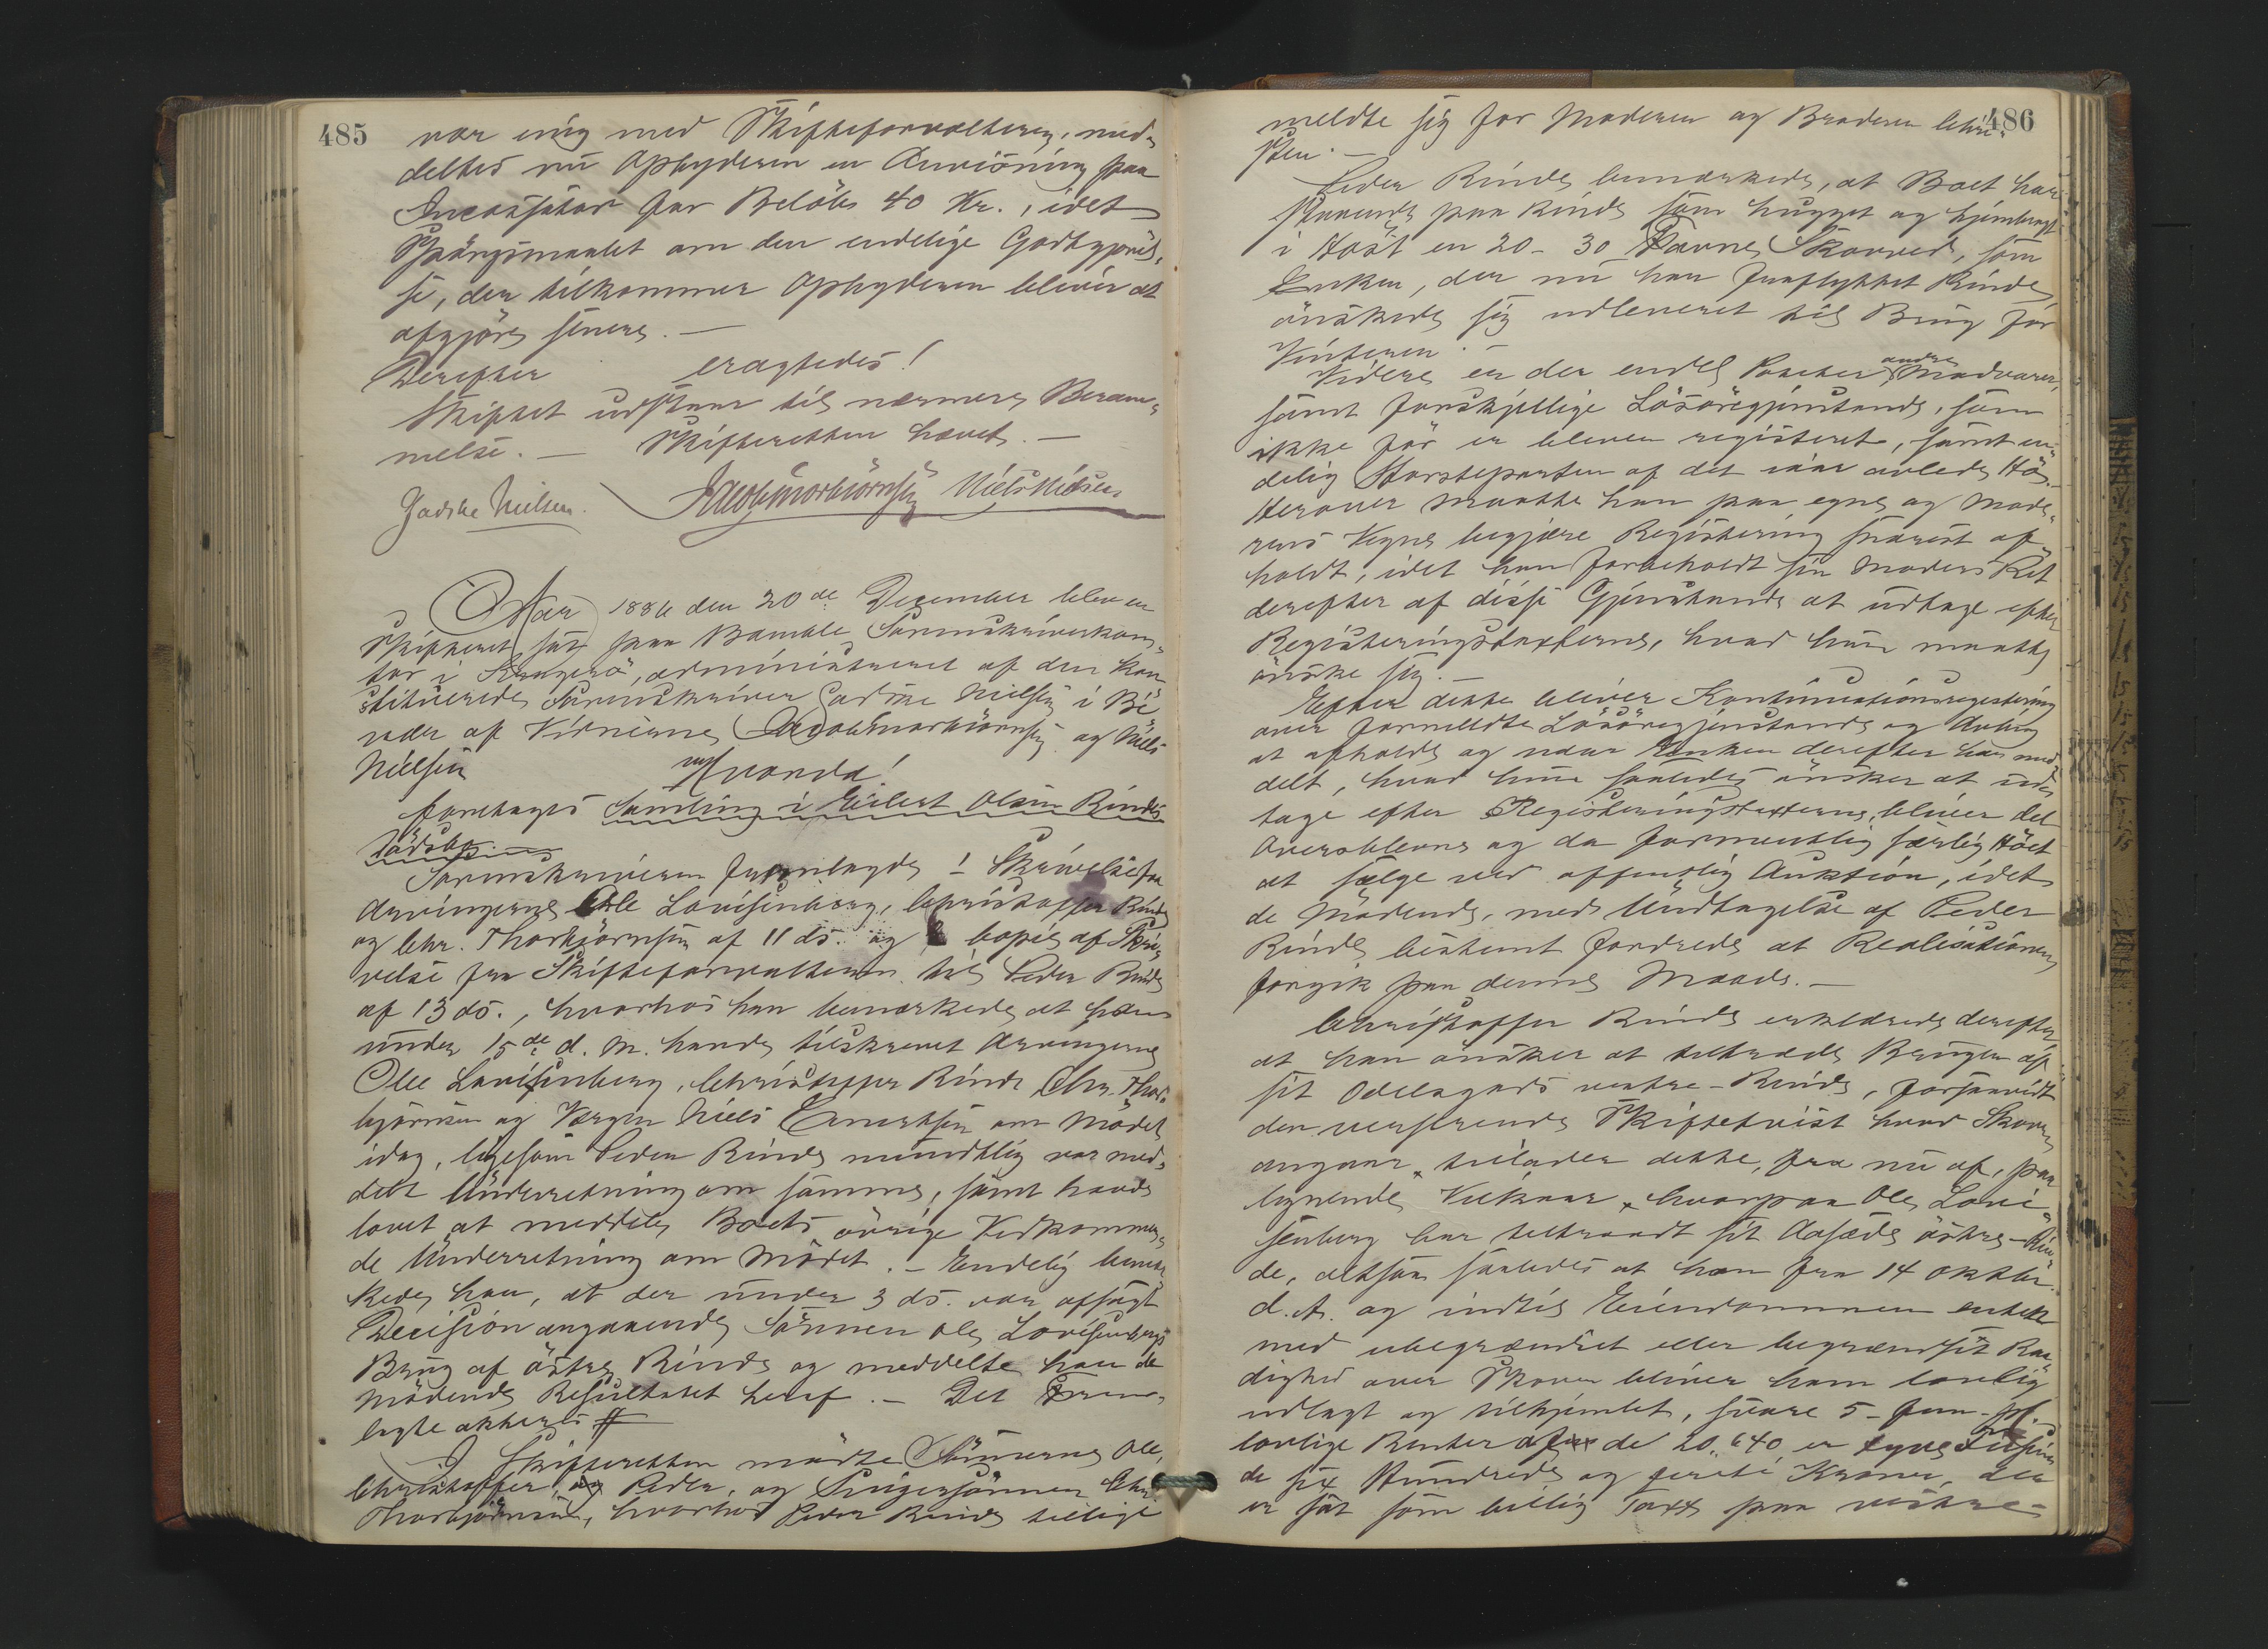 485
var enig med Skifteforvalteren, med-
deltes nu Opbyderen en Anvisning paa
Incassator for Beløbet 40 Kr., idet
Spørgsmaalet om den endelige Godtgjørel-
se, der tilkommer Opbyderen bliver at
afgjøre senere. —
Derefter eragtedes!
Skiftet udstaar til nærmere Beram-
melse. — Skifteretten hævet. —
Gødske Nielsen. Jacob Thorbiörnsen Niels Nielsen
Aar 1886 den 20de Dezember blev en
Skifteret sat paa Bamble Sorenskriverkon-
tor i Kragerø, administreret af den kon-
stituerede Sorenskriver Gødske Nielsen i Bi-
væer af Vidnerne Jacob Thorbiörnsen og Niels
Nielsen
Hvorda!
foretages Samling i Eilert Olsen Rindes
Dødsbo. —
Sorenskriveren fremlagde 1 Skrivelse fra
Arvingerne Ole Lovisenberg, Christoffer Rinde
og Chr. Thorbjørnsen af 11 ds. og Copie af Skri-
velse fra Skifteforvalteren til Peder Rinde
af 13 ds., hvorhos han bemærkede at have
under 15de d. M. havde tilskrevet Arvingerne
Ole Lovisenberg, Christoffer Rinde, Chr. Thor-
bjørnsen og Værgen Niels Evertsen om Mødet
idag, ligesom Peder Rinde mundtlig var med-
delt Underretning om samme, samt havde
lovet at meddele Boets øvrige Vedkommen-
de Underretning om Mødet. — Endelig bemær-
kede han, at der under 3 ds. var afsagt
Decision angaaende Sønnen Ole Lovisenbergs
Brug af østre Rinde og meddelte han de
Mødende Resultatet heraf. — Det Frem-
lagte akteres
I Skifteretten mødte Sønnerne Ole,
Christoffer og Peder, og Svigersønnen Chr.
Thorbjørnsen, hvorhos Peder Rinde tillige
486
meldte sig for Moderen og Broderen Chri-
sten. —
Peder Rinde bemærkede, at Boet har
staaende paa Rinde som hugget og hjembragt
i Høst en 20 - 30 Favne Skovved, som
Enken, der nu har fraflyttet Rinde,
ønskede sig udleveret til Brug for
Vinteren. —
Videre er der endel Poteter andre Madvarer,
samt forskjellige Løsøregjenstande, som
ikke før er bleven registeret, samt en-
delig Størsteparten af det iaar avlede Hø.
Herover maatte han paa egne og Mode-
rens Vegne begjære Registering snarest af-
holdt, idet han forbeholdt sin Moders Ret
derefter af disse Gjenstande at udtage efter
Registeringstaxterne, hvad hun maatte
ønske sig.
Efter dette bliver Kontinuationsregistering
over formeldte Løsøregjenstande og Avling
at afholde og naar Enken derefter har med-
delt, hvad hun saaledes ønsker at ud-
tage efter Registeringstaxterne, bliver det
Overblevne og da formentlig særlig Høet
at sælge ved offentlig Auktion, idet
de Mødende, med Undtagelse af Peder
Rinde bestemt fordrede at Realisationen
foregik paa denne Maade. —
Christoffer Rinde erklærede derefter
at han ønsker at tiltræde Brugen af
sit Odelsgods vestre-Rinde, forsaavidt
den verserende Skiftetvist hvad Skoven
angaar, tillader dette, fra nu af, paa
lignende Vilkaar, hvorpaa Ole Lovi-
senberg har tiltraadt sit Aasæde østre-Rin-
de, altsaa saaledes at han fra 14 Oktbr.
d. A. og indtil Eiendommen enten
med ubegrændset eller begrændset Raa-
dighed over Skoven bliver ham lovlig
udlagt og tilhjemlet, svare 5 - fem - pCt.
lovlige Renter af de 20,640 er tyve Tusin-
de sex Hundrede og firti Kroner, der
er sat som billig Taxt paa vestre-